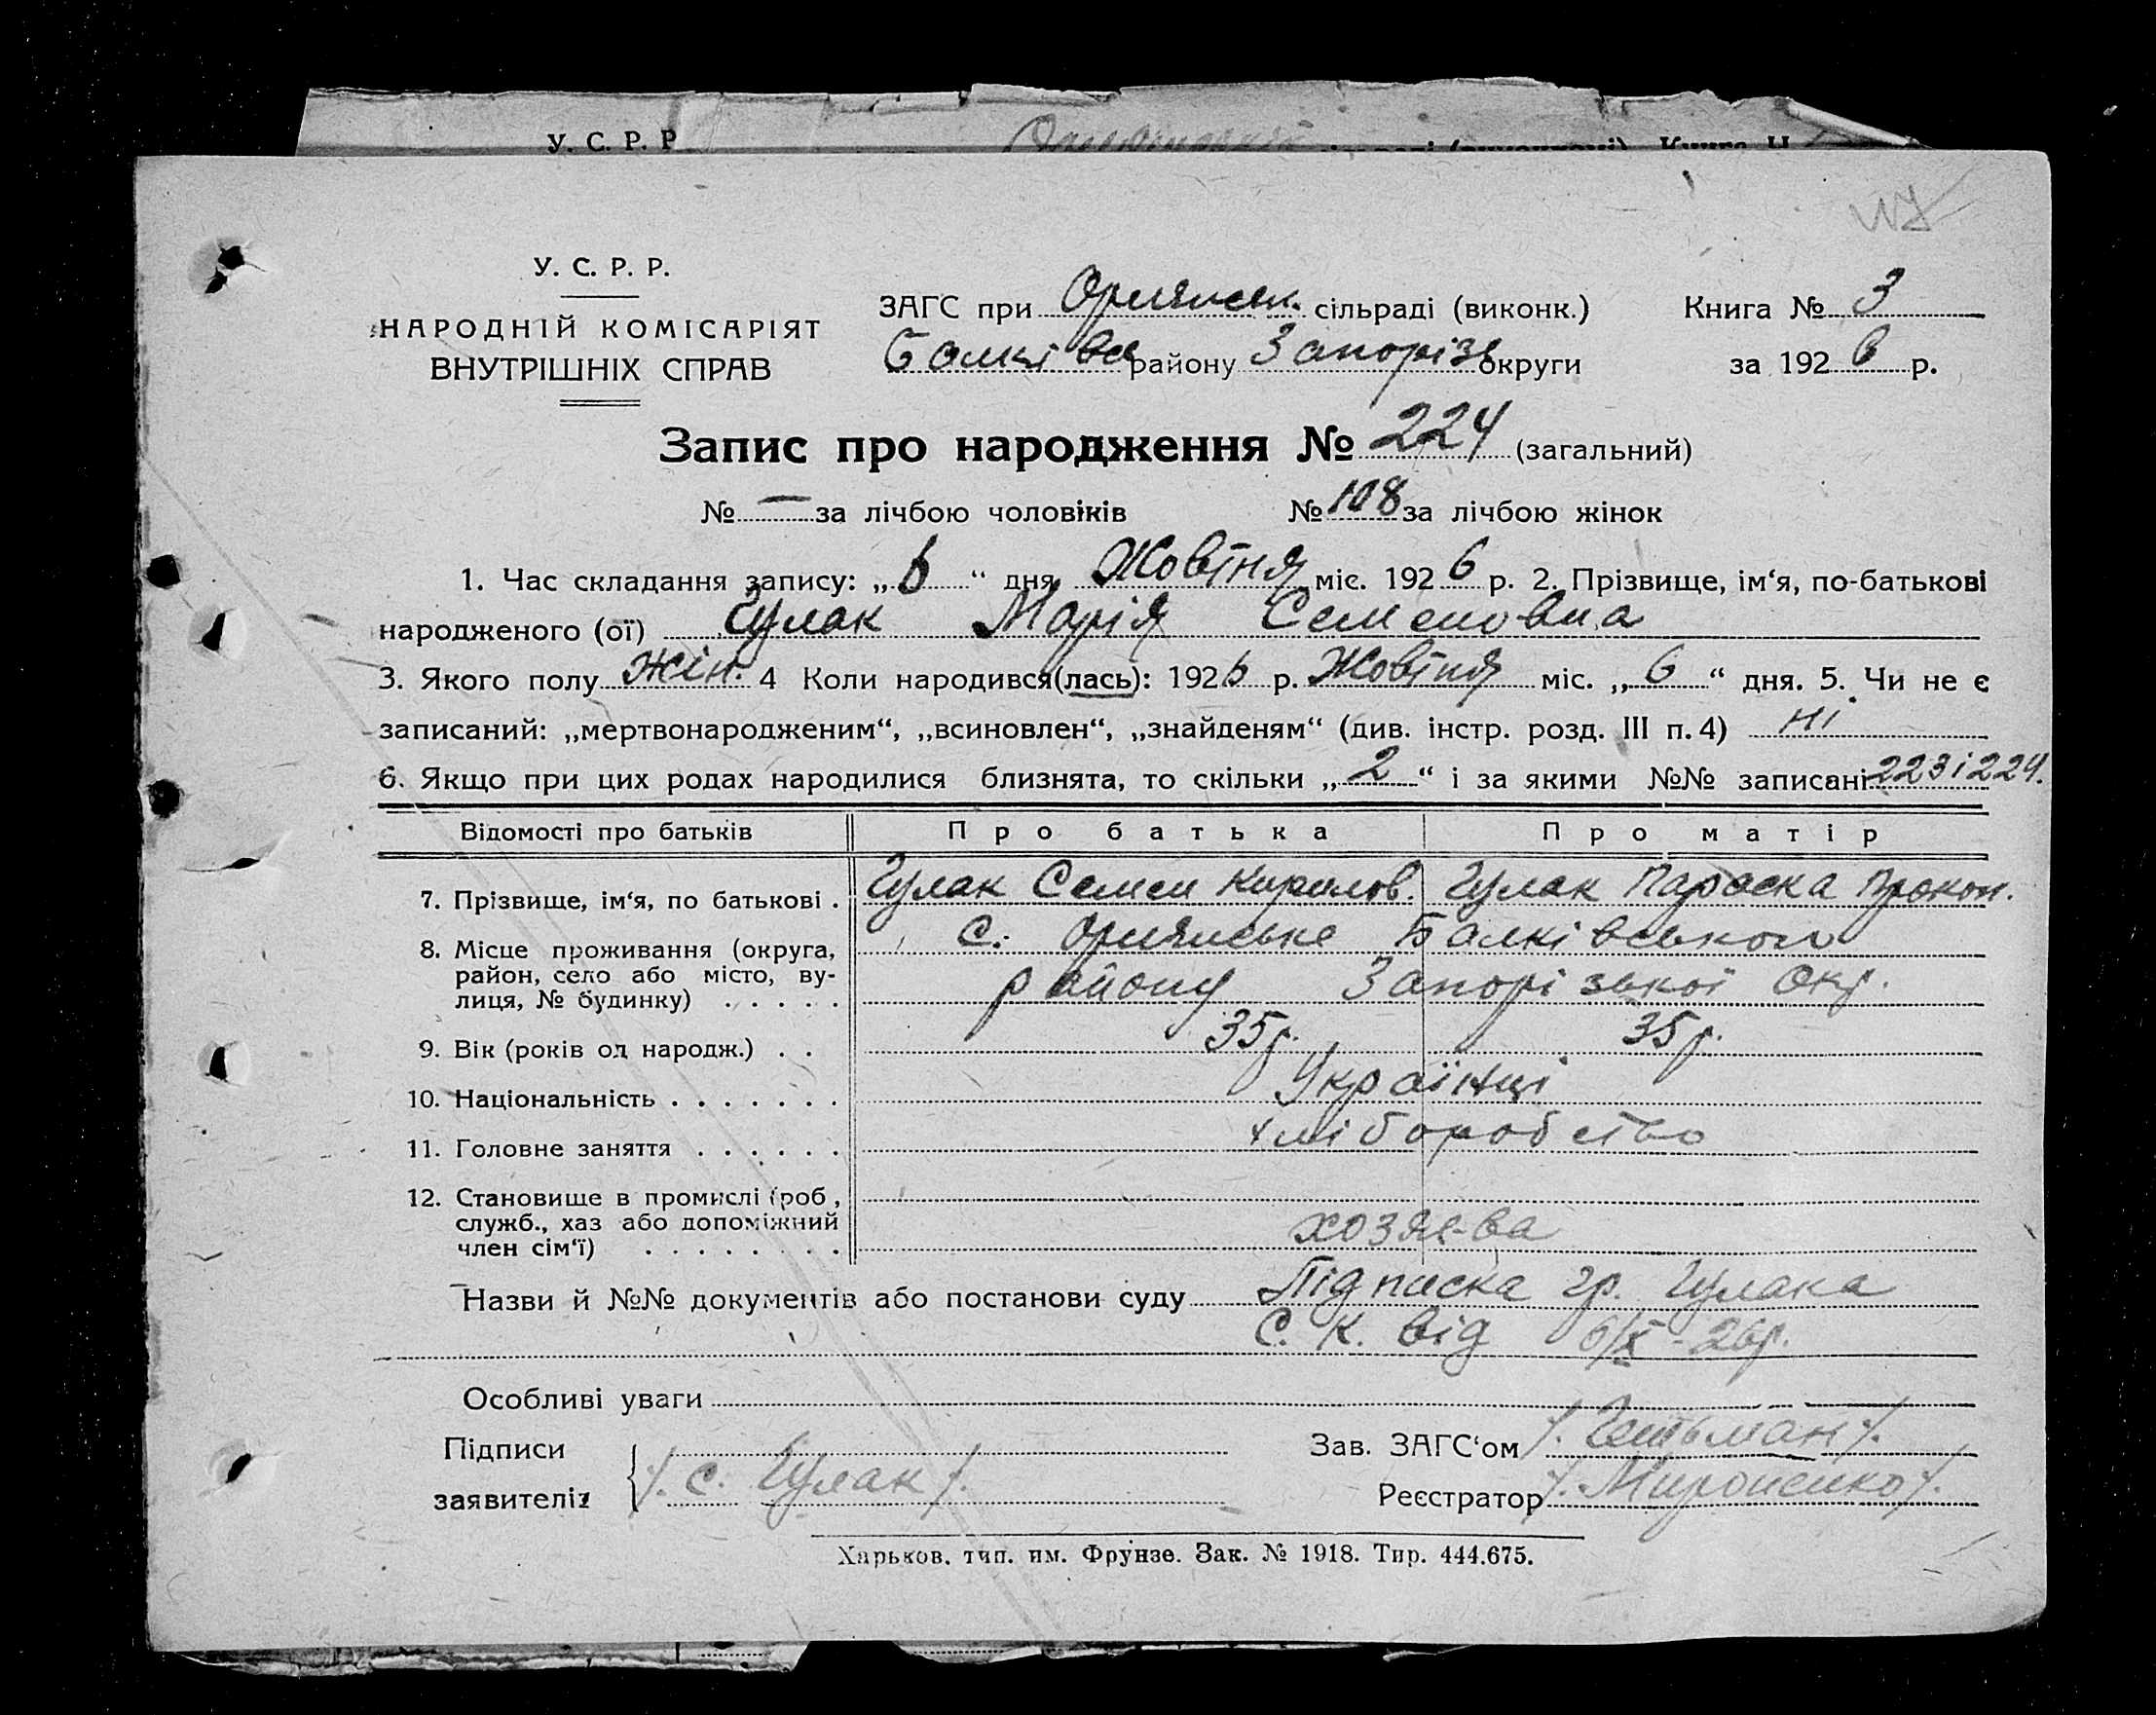 У. С. Р. Р
У. С. Р. Р.
НАРОДНІЙ КОМІСАРІЯТ
ВНУТРІШНІХ СПРАВ
ЗАГС при Орлянськ. сільраді (виконк.) Книга № 3
Балківс району Запоріз округи за 1926 р.
Запис про народження № 224 (загальний)
№ — за лічбою чоловіків № 108 за лічбою жінок
1. Час складання запису: „6“ дня Жовтня міс. 1926 р. 2. Прізвище, ім‘я, по-батькові
народженого (ої) Гулак Марія Семеновна
3. Якого полу жін. 4 Коли народився(лась): 1926 р. Жовтня міс. „6“ дня. 5. Чи не є
записаний: „мертвонародженим“, „всиновлен“, „знайденям“ (див. інстр. розд. III п. 4) ні
6. Якщо при цих родах народилися близнята, то скільки „2“ і за якими №№ записані 223 і 224.
Відомості про батьків Про батька Про матір
7. Прізвище, ім‘я, по батькові . Гулак Семен Кирилов. Гулак Параска Прокоп.
8. Місце проживання (округа, с. Орлянське Балківського
район, село або місто, ву-
лиця, № будинку) . . . . . району Запорізької Окр.
9. Вік (років од народж.) . . 35 р. 35 р.
10. Національність . . . . . . . Українці
11. Головне заняття . . . . . . хліборобство
12. Становище в промислі (роб,
служб., хаз або допоміжний
член сім‘ї) . . . . . . . . хозяє-ва
Назви й №№ документів або постанови суду Підписка гр. Гулака
С. К. від 6/X-26р.
Особливі уваги
Підписи Зав. ЗАГС‘ом /. Гетьман /.
заявителів /. С. Гулак /. Реєстратор /. Мироненко /.
Харьков. тип. им. Фрунзе. Зак. № 1918. Тир. 444.675.